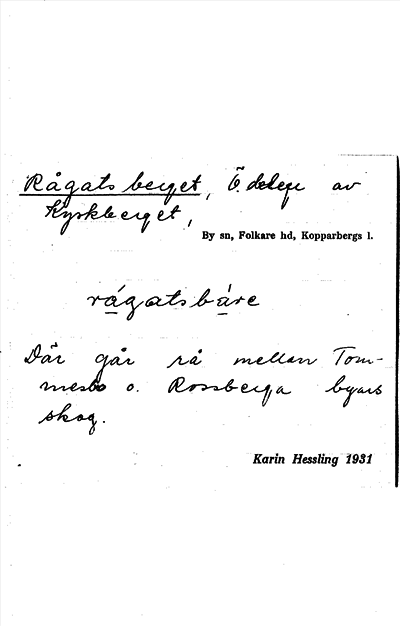 Rågatsberget, Ö. delen av
Kyrkberget,
By sn, Folkare hd, Kopparbergs l.
rágatsbàre
Där går rå mellan Tom-
mesbo o. Rossberga byars
skog.
Karin Hessling 1931